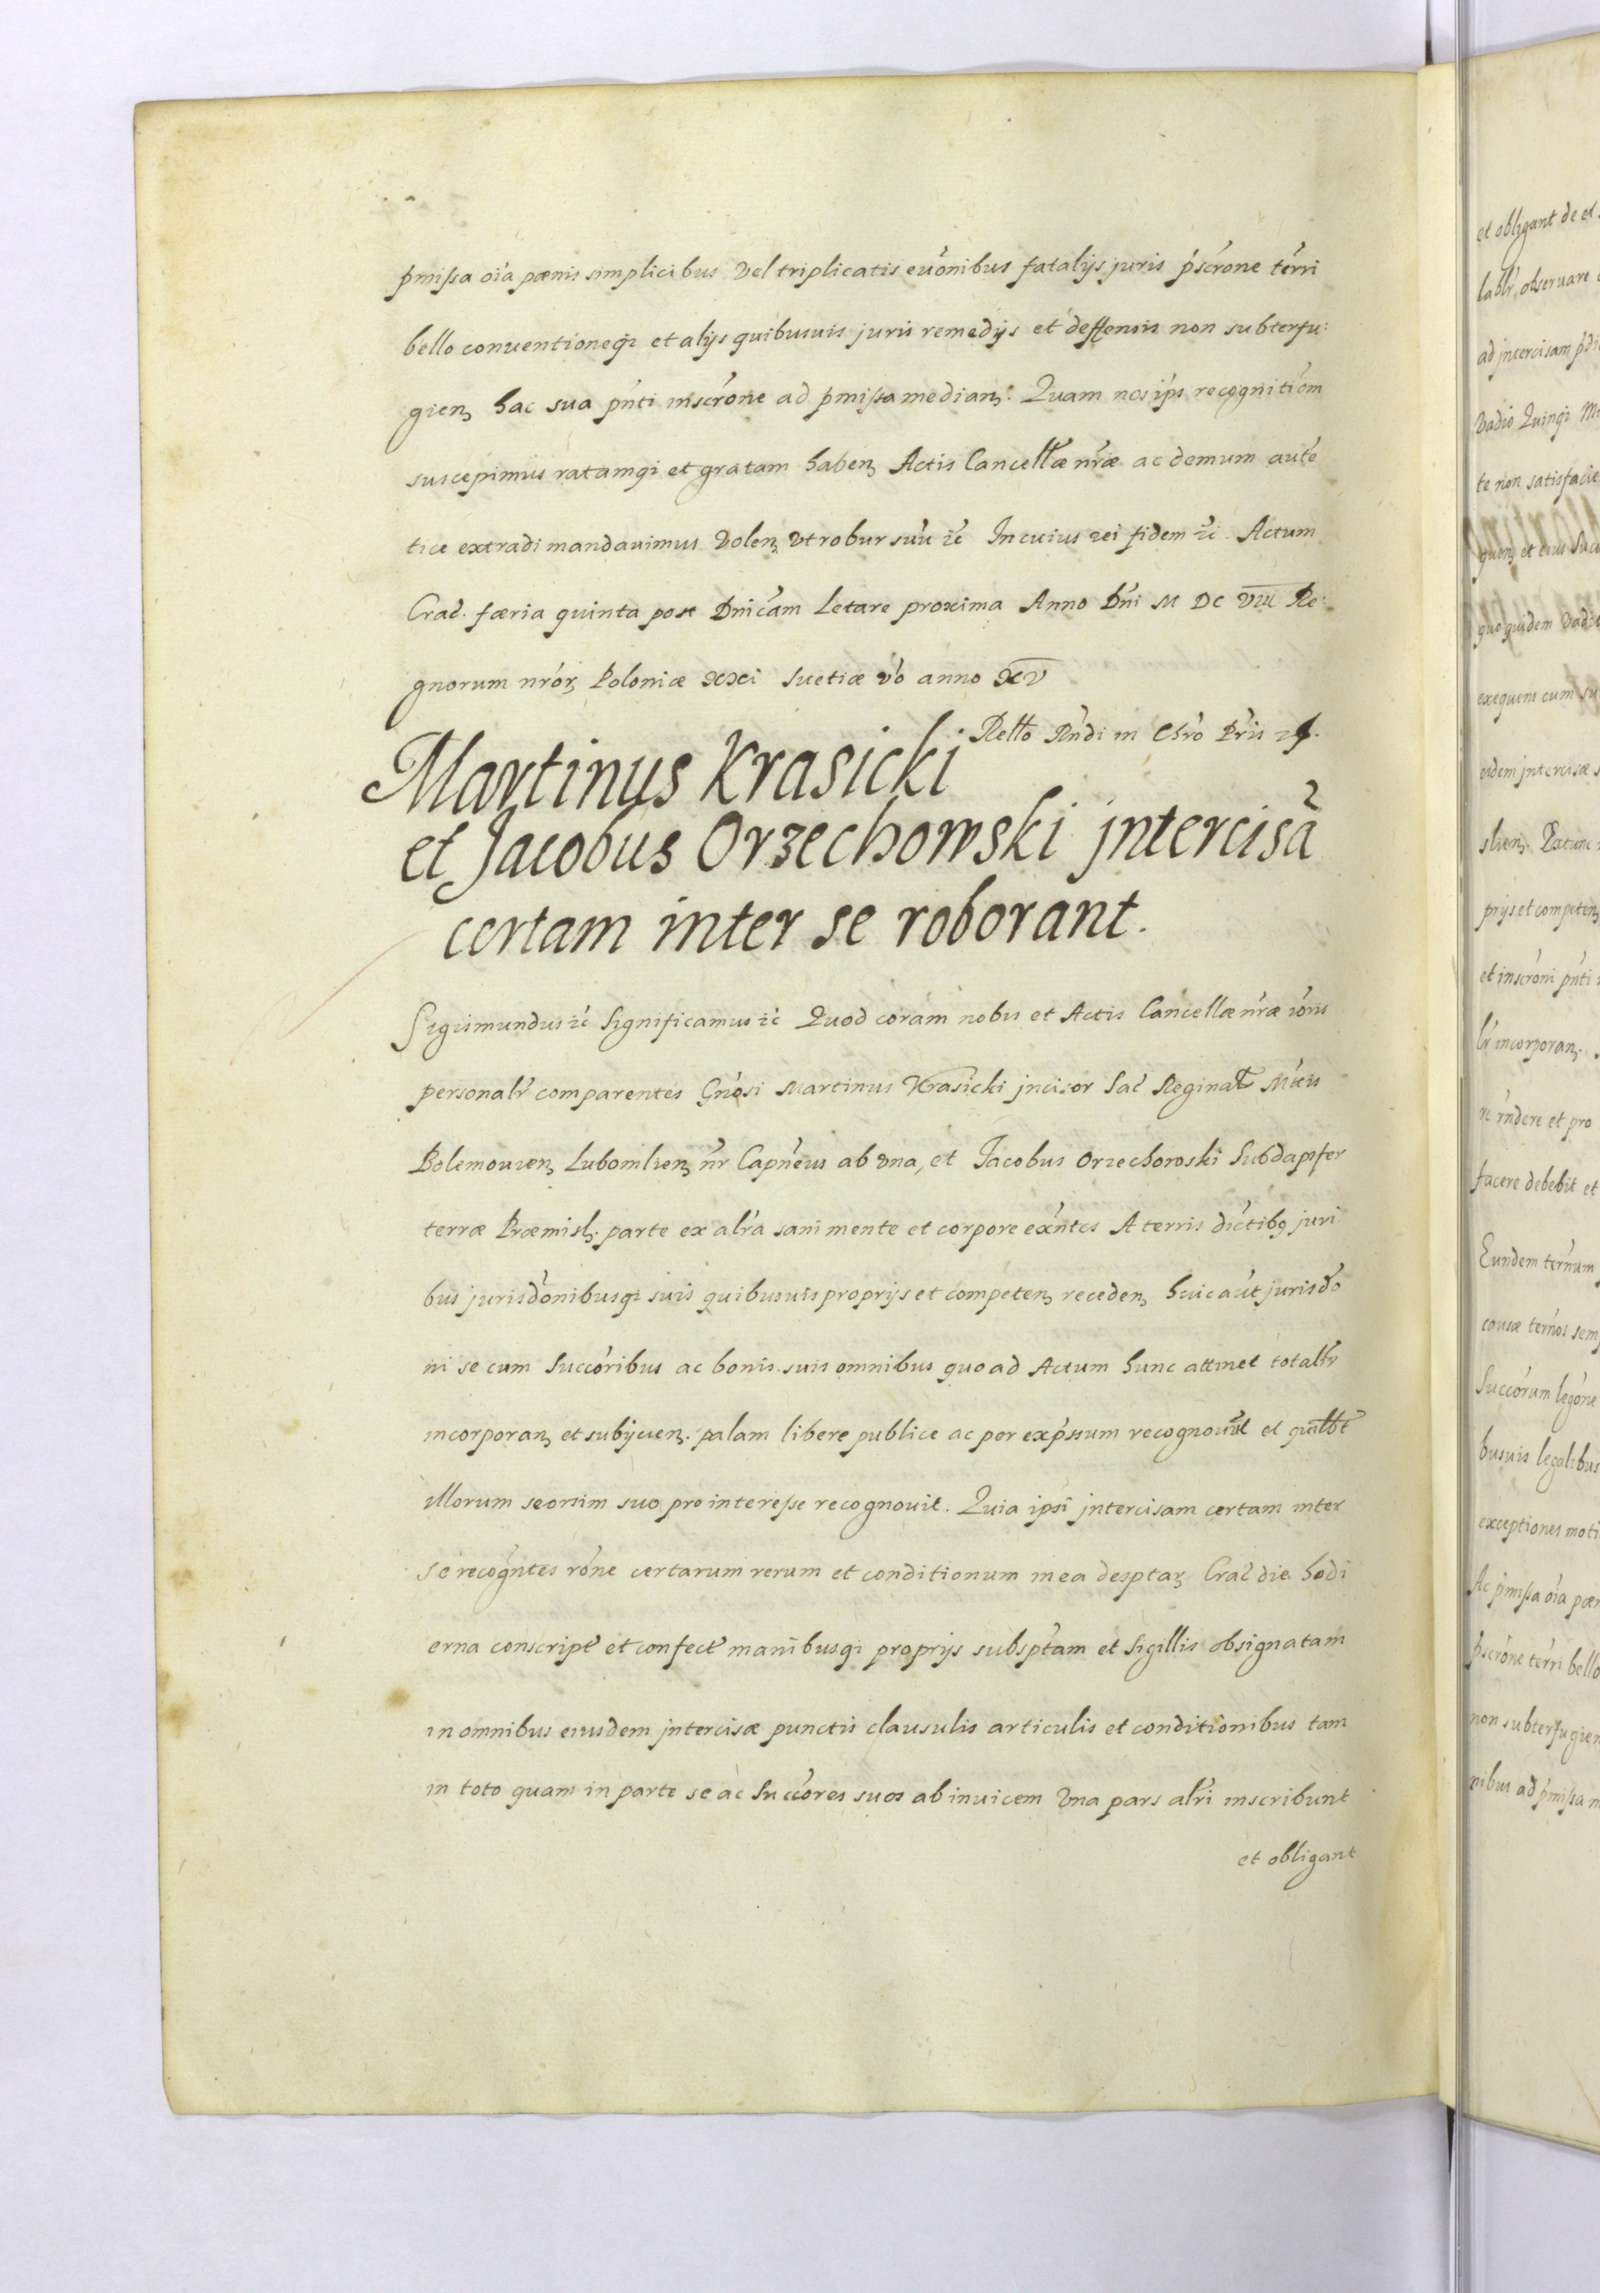 pmissa oia pænis simplicibus vel triplicatis euonibus fatalijs juris pscrone terri
bello conuentioneqz et alijs quibusuis juris remedijs et deffensis non subterfu:
gien hac sua pnti inscrone ad pmissa median. Quam nos ips recognitiom
suscepimus ratamqz et gratam haben Actis Cancellæ nræ ac demum aute
tice extradi mandauimus volen vt robur suu &c In cuius rei fidem &c. Actum
Crac. færia quinta post Dnicam Letare proxima Anno Dni M DC VIII Re:
gnorum nror Poloniæ xxi Suetiæ vo anno XV
Relto Rndi in Chro Pris
Martinus Krasicki
et Jacobus Orzechowski jntercisã
certam inter se roborant.
Sigismundus &c Significamus &c Quod coram nobis et Actis Cancellæ nræ
personalr comparentes Gnosi Martinus Krasicki jncisor Sac Reginal Mtis
Bolemouien Lubomlien nr Capneus ab vna, et Jacobus Orzechowski Subdapifer
terræ Præmisl. parte ex alra sani mente et corpore exntes A terris dictibq juri
bus jurisdonibusqz suis quibusuis proprijs et competen receden huic aut jurisdo
ni se cum Succoribus ac bonis suis omnibus quoad Actum hunc attinet totalr
incorporan et subijcien. palam libere publice ac per expssum recognouit et quilbt
illorum seorsim suo pro interesse recognouit. Quia ipsi jntercisam certam inter
se recogntes rone certarum rerum et conditionum in ea desptar Crac die hodi
erna conscript et confect manibusqz proprijs subsptam et Sigillis obsignatam
in omnibus eiusdem jntercisæ punctis clausulis articulis et conditionibus tam
in toto quam in parte se ac Succores suos ab inuicem vna pars alri inscribunt
et obligant
et obligant de et
lablr, obseruare
ad jntercisam pdi
vadio Quinqz
te non satisfacie
quen et eius Succ
quo quidem vadio
exequens cum su
eidem jntercisæ s
slien. Ratunc
prijs et competen
et inscroni pnti
lr incorporan.
re rndere et pro
facere debebit et
Eundem ternum
causæ ternos sem
Succorum legone
busuis legalibus
exceptiones moti
Ac pmissa oia pæn
pscrone terri bello
non subterfugien
nibus ad pmissa m